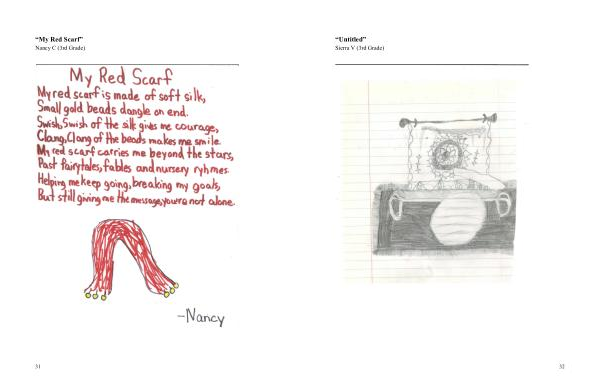 "My Red Scarf"
Nancy C (3rd Grade)
My Red Scarf
My red scarf is made of soft silk,
Small gold beads dangle on end.
Swish, Swish of the silk gives me courage,
Clang, Clang of the beads makes me smile.
My red scarf carries me beyond the stars,
Past fairytales, fables and nursery ryhmes.
Helping me keep going, breaking my goals,
But still giving me the message, you're not alone.
-Nancy
31
"Untitled"
Sierra V (3rd Grade)
32